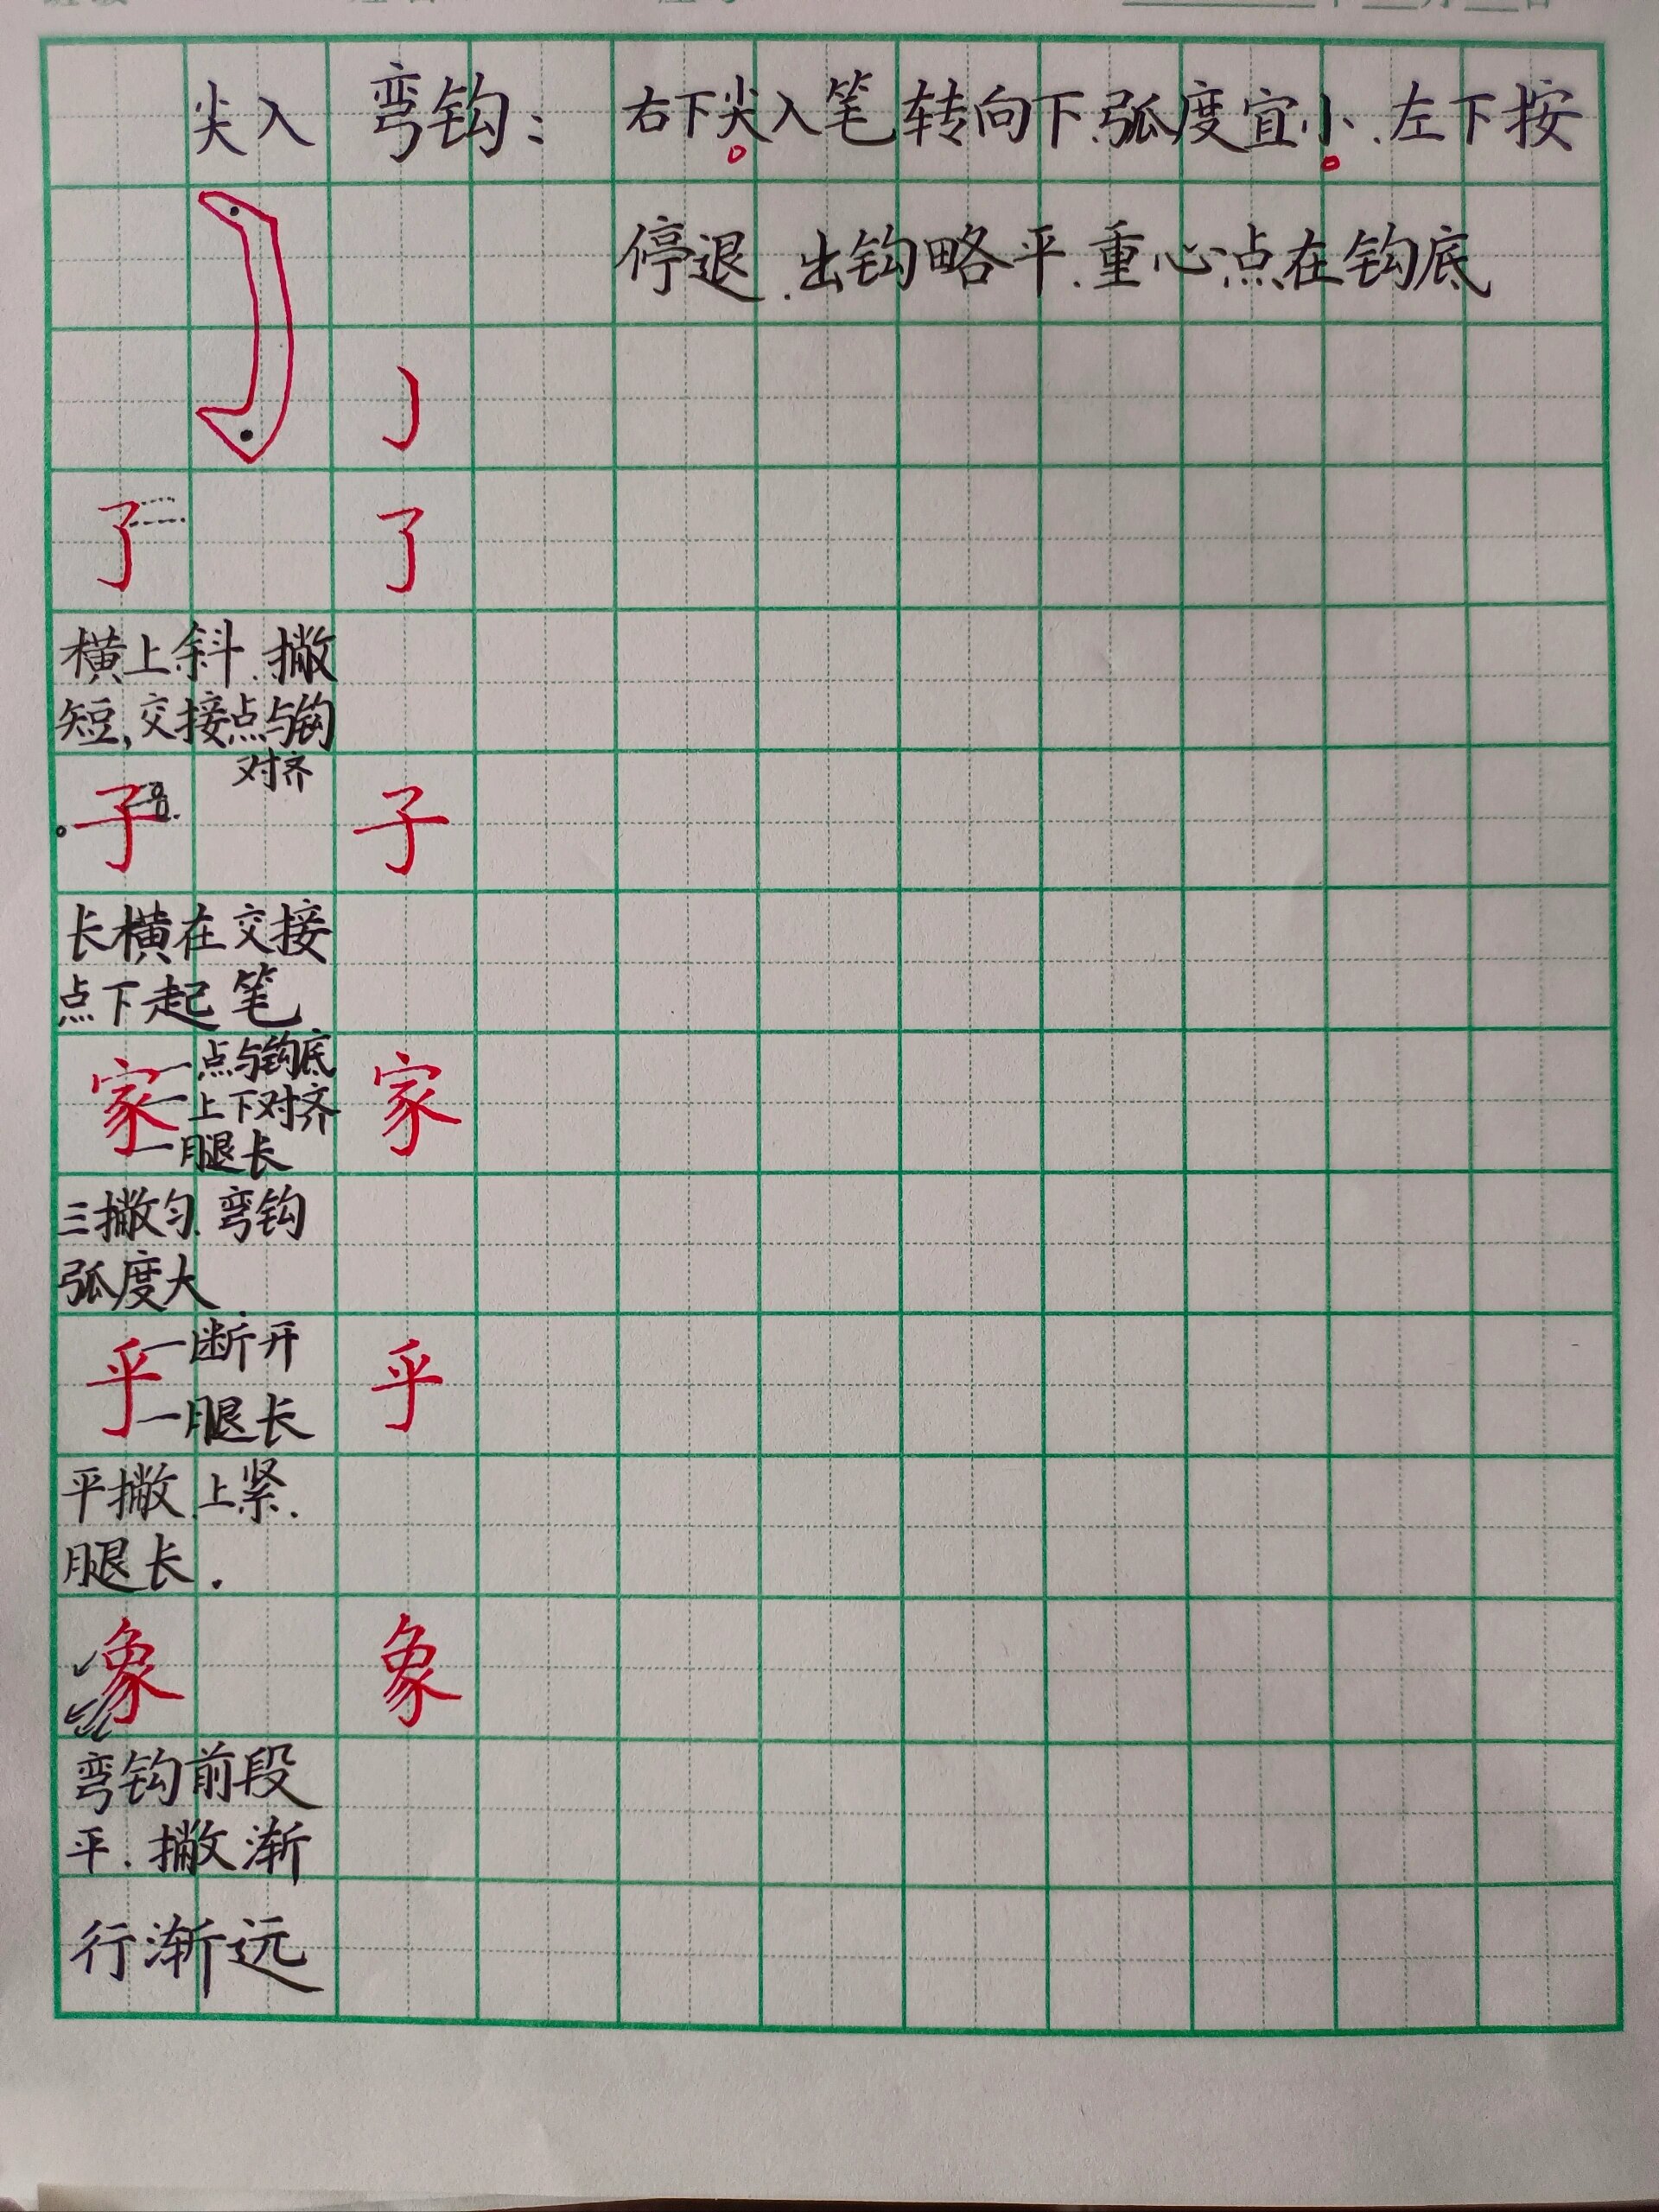 尖入 弯钩：右下尖入笔转向下.弧度宜小.左下按
停退.出钩略平.重心点在钩底
了 了
横上斜.撇
短,交接点与钩
对齐
子 子
长横在交接
点下起笔
家 家
一点与钩底
一上下对齐
一腿长
三撇匀.弯钩
弧度大.
乎 一断开 乎
一腿长
平撇.上紧.
腿长.
象 象
弯钩前段
平.撇渐
行渐远